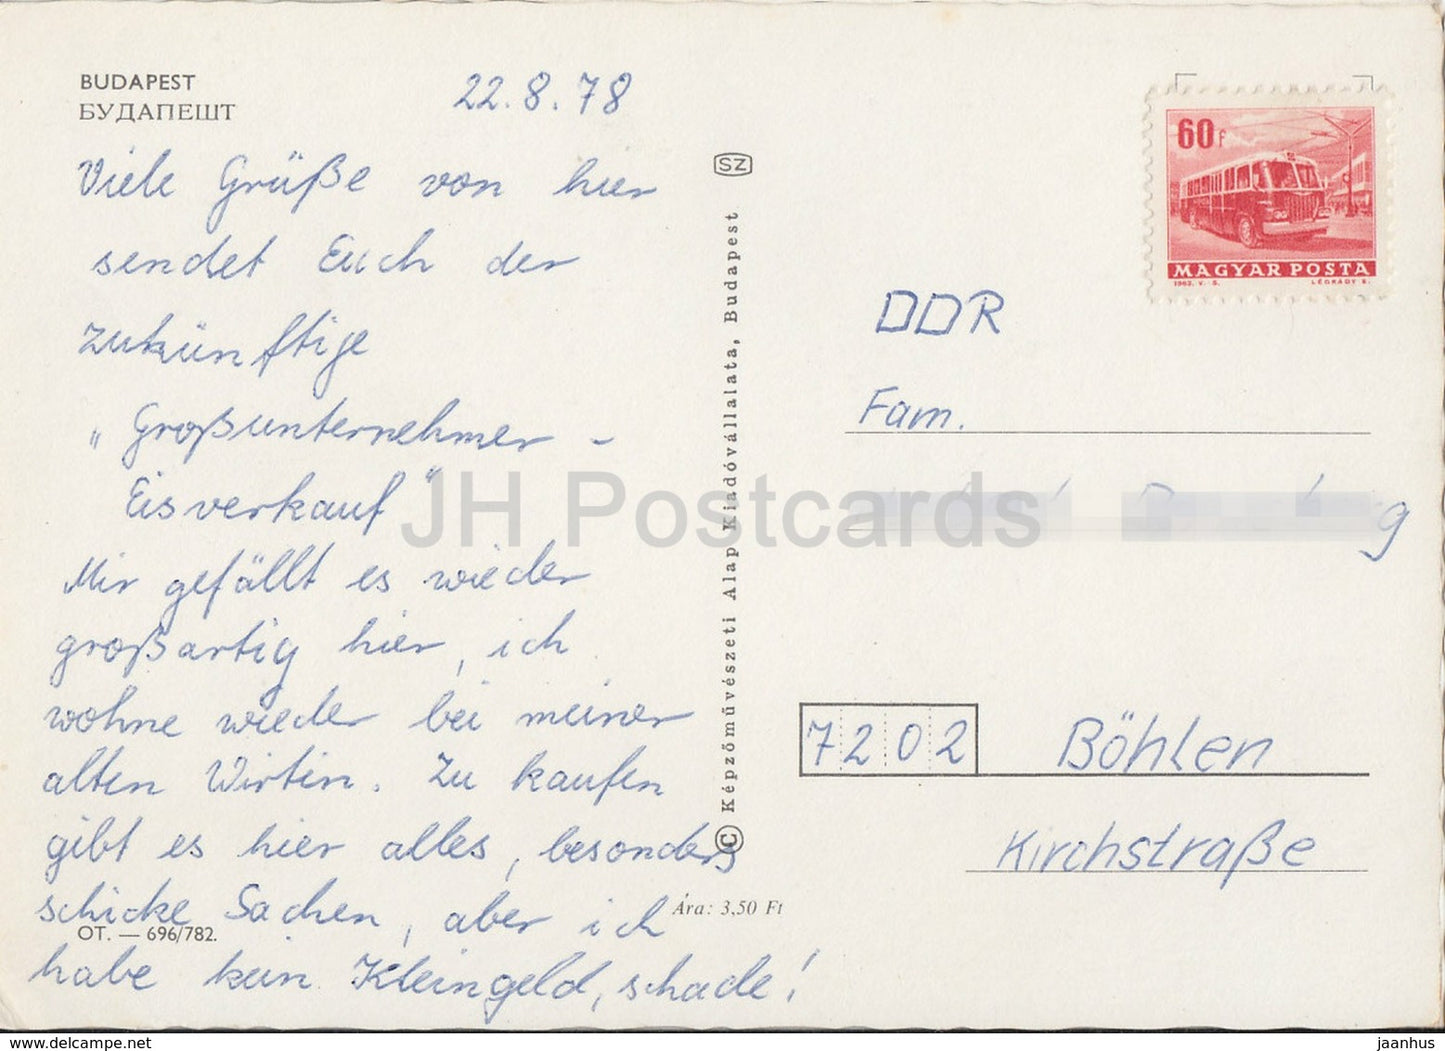 BUDAPEST
БУДАПЕШТ
22.8.78
Viele Grüße von hier
sendet Euch der
zukünftige
„Großunternehmer –
Eisverkauf"
Mir gefällt es wieder
großartig hier, ich
wohne wieder bei meiner
alten Wirtin. Zu kaufen
gibt es hier alles, besonders
schicke Sachen, aber ich
habe kein Kleingeld, schade!
OT. — 696/782.
Ára: 3,50 Ft
SZ
© Képzőművészeti Alap Kiadóvállalata, Budapest
60f
MAGYAR POSTA
1963. V. S.
LÉGRÁDY S.
DDR
Fam.
7202 Böhlen
Kirchstraße
JH Postcards
www.delcampe.net
jaanhus